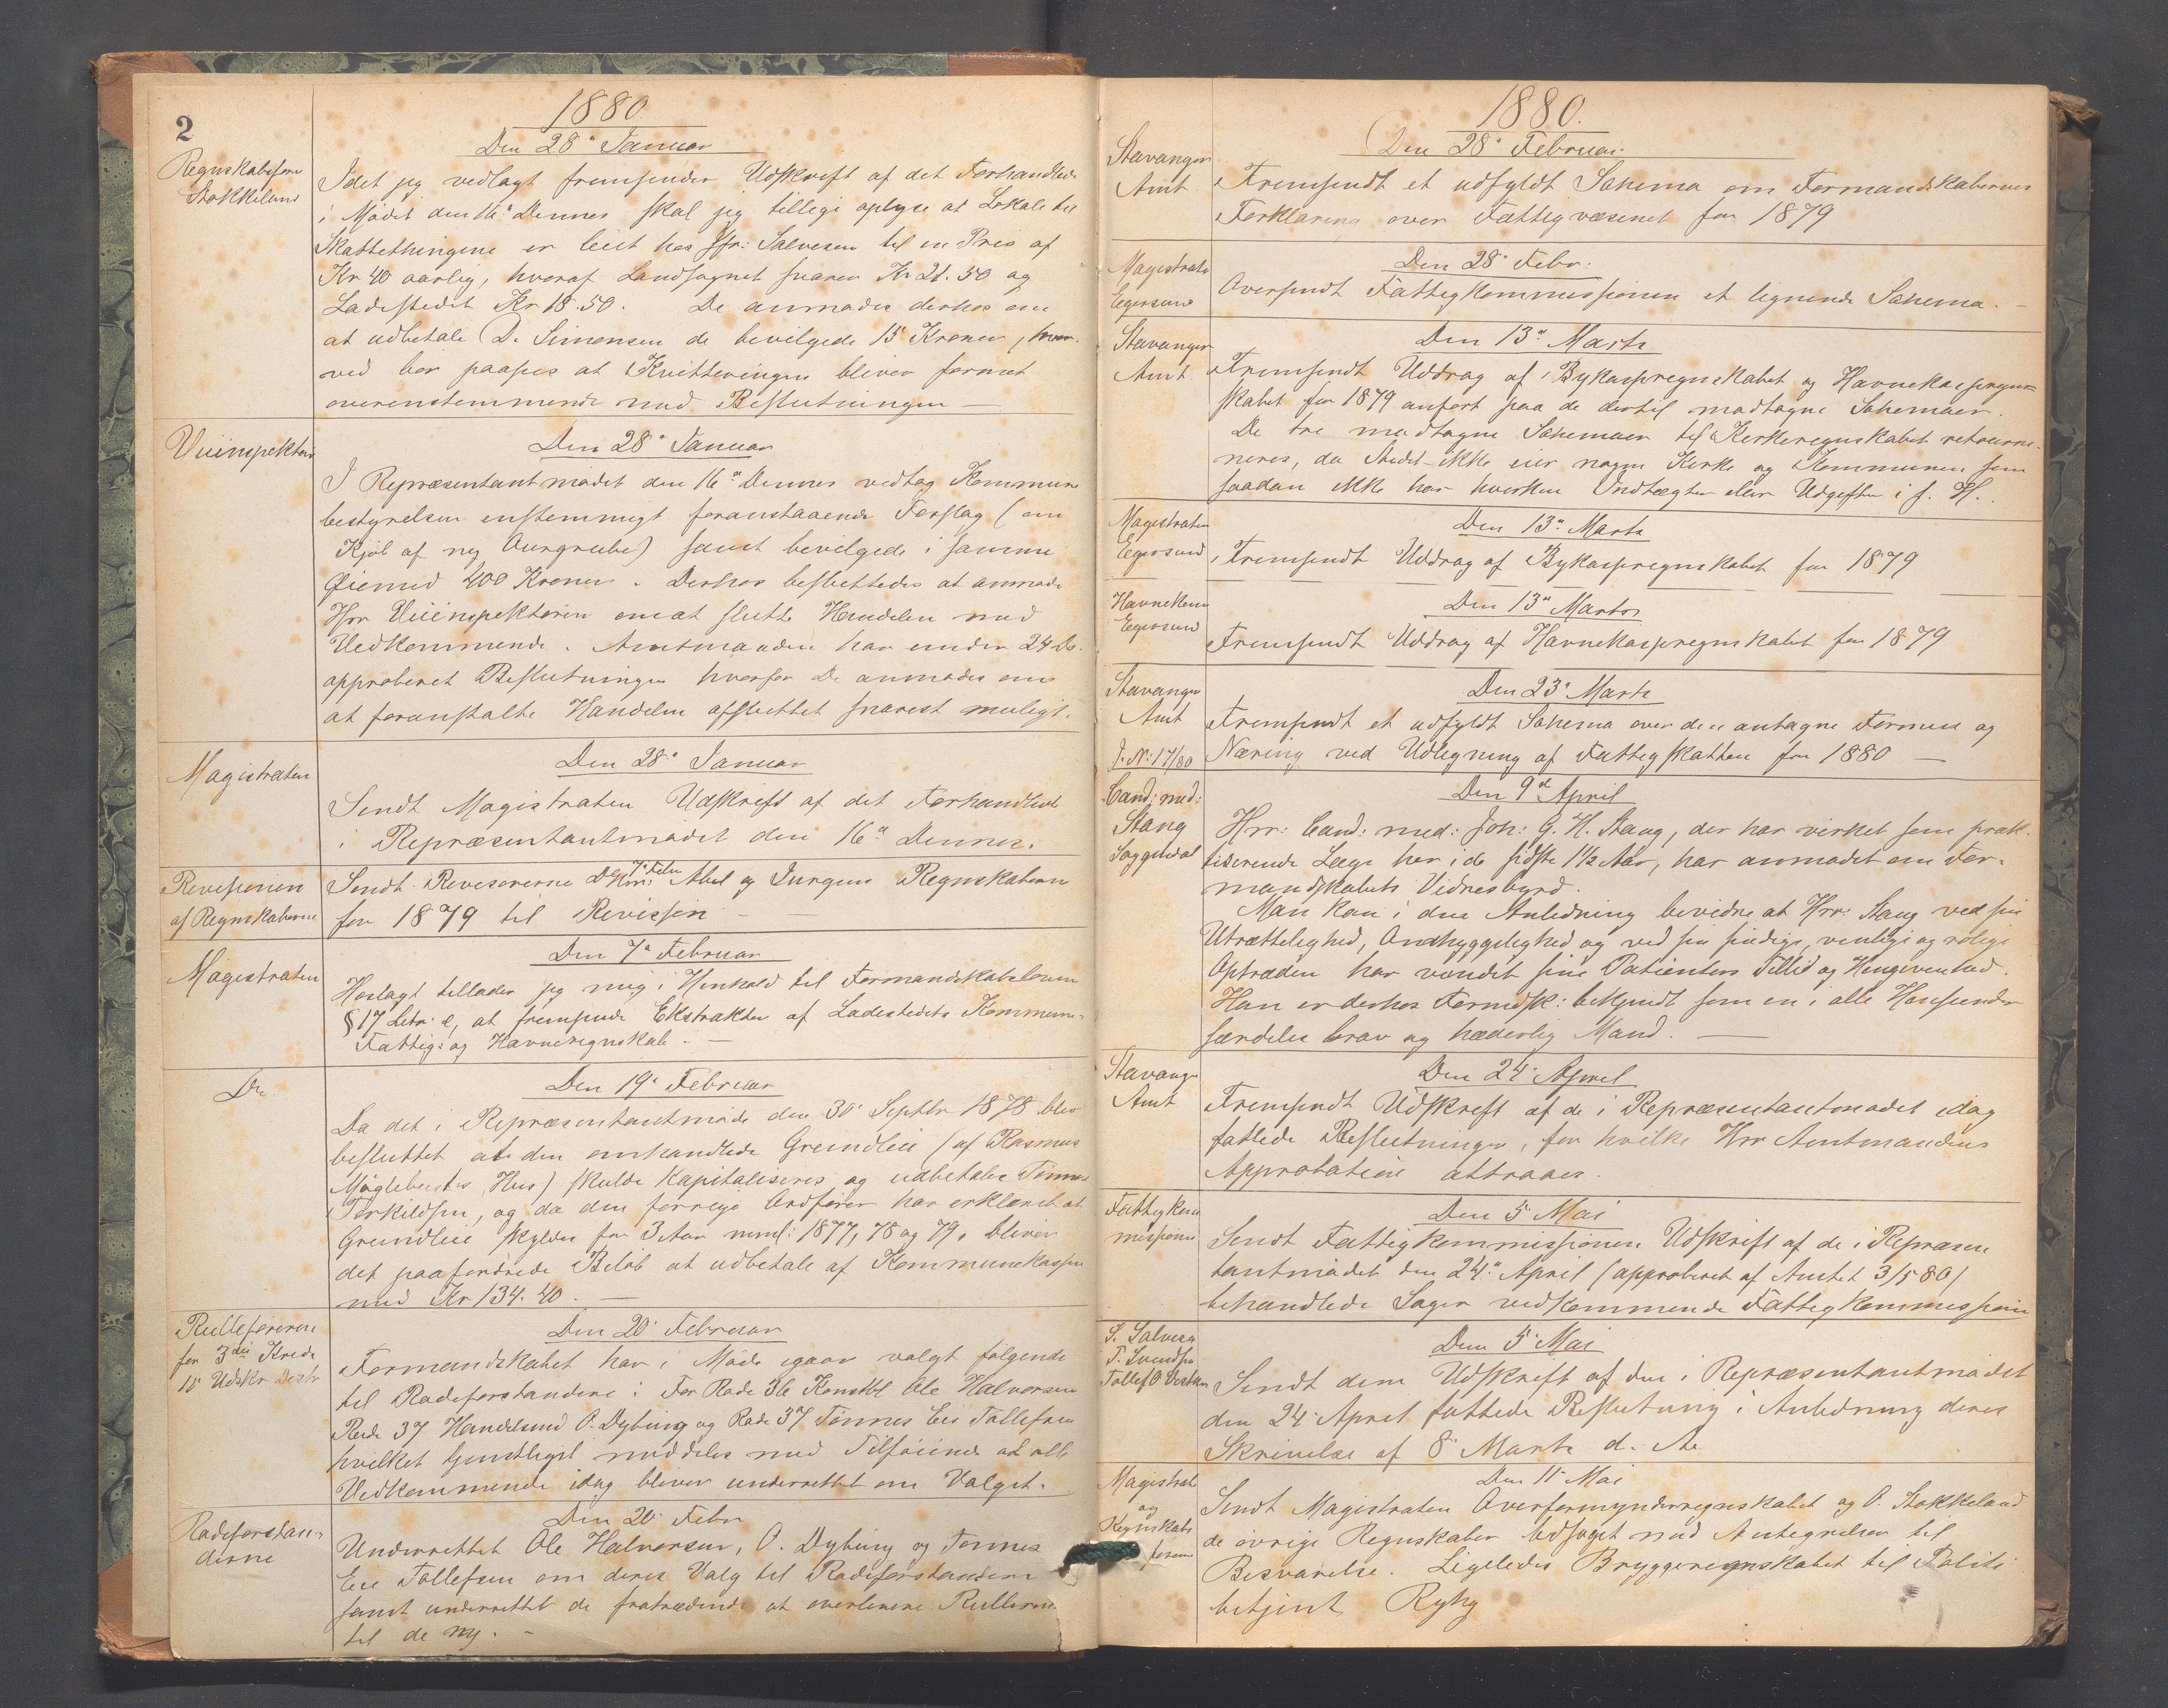 2
1880.
Den 28de Januar
Regnskabsfører
Stokkeland
Idet jeg vedlagt fremsender Udskrift af det Forhandlede
i Mødet den 16de Dennes skal jeg tillige oplyse at Lokale til
Skattethingene er leiet hos Jfr: Salvesen til en Pris af
Kr 40 aarlig, hvoraf Landsognet svarer Kr 21.50 og
Ladestedet Kr 18.50. De anmodes derhos om
at udbetale D. Simonsen de bevilgede 15 Kroner, hvor-
ved bør paasees at Kvitteringen bliver formet
overenstemmende med Beslutningen
Veiinspektøren
Den 28de Januar
I Repræsentantmødet den 16de Dennes vedtog Kommune
bestyrelsen enstemmigt foranstaaende Forslag (om
Kjøb af ny Aurgrube) samt bevilgede i samme
Øiemed 400 Kroner. Derhos besluttedes at anmode
Hrr Veiinspektøren om at slutte Handelen med
Vedkommende. Amtmanden har under 24 ds.
approberet Beslutningen hvorfor De anmodes om
at foranstalte Handelen afsluttet snarest muligt.
Magistraten
Den 28de Januar
Sendt Magistraten Udskrift af det Forhandlede
i Repræsentantmødet den 16de Dennes.
Revisionen
af Regnskaberne
Den 7de Febr
Sendt Revisorerne Hrr: Abel og Jürgens Regnskaberne
for 1879 til Revision
Magistraten
Den 7de Februar
Hoslagt tillader jeg mig i Henhold til Formandskabsloven
§ 17 Litr. e, at fremsende Ekstrakter af Ladestedets Kommune-
Fattig- og Havneregnskab.
Do
Den 19de Februar
Da det i Repræsentantmøde den 30te Septbr 1878 blev
besluttet at den omhandlede Grundleie (af Rasmus
Møglebusts Hus) skulde kapitaliseres og udbetales Tønnes
Torkildsen, og da den forrige Ordfører har erklæret at
Grundleie skyldes for 3 Aar neml: 1877, 78 og 79, bliver
det paafordrede Beløb at udbetale af Kommunekassen
med Kr 134.40.
Rulleføreren
for 3die Kreds
10 Udskr Distr
Den 20de Februar
Formandskabet har i Møde igaar valgt følgende
til Rodeforstandere: For Rode 36 Konstbl Ole Halvorsen
Rode 37 Handelsmd O. Dybing og Rode 37 Tønnes Eie Tollefsen
hvilket tjenstligst meddeles med Tilføiende at alle
Vedkommende idag bliver underrettet om Valget.
Rodeforstan-
derne
Den 20de Febr
Underrettet Ole Halvorsen, O. Dybing og Tønnes
Eie Tollefsen om deres Valg til Rodeforstandere
samt underrettet de fratrædende at overlevere Rullerne
til de ny.
1880.
Den 28de Februar.
Stavanger
Amt
Fremsendt et udfyldt Schema om Formandskabernes
Forklaring over Fattigvæsenet for 1879
Magistraten
Egersund
Den 28de Febr.
Oversendt Fattigkommissionen et lignende Schema.
Stavanger
Amt
Den 13de Marts
Fremsendt Uddrag af Bykasseregnskabet og Havnekasseregn-
skabet for 1879 anført paa de dertil modtagne Schemaer.
De tre modtagne Schemaer til Kirkeregnskabet retour-
neres, da Stedet ikke eier nogen Kirke og Kommunen som
saadan ikke har hverken Indtægter eller Udgifter i s. H.
Magistraten
Egersund
Den 13de Marts
Fremsendt Uddrag af Bykasseregnskabet for 1879
Havnekom
Egersund
Den 13de Marts
Fremsendt Uddrag af Havnekasseregnskabet for 1879
Stavanger
Amt
J. No: 17/80
Den 23de Marts
Fremsendt et udfyldt Schema over den antagne Formue og
Næring ved Udligning af Fattigskatten for 1880
Cand: med:
Stang
Soggendal
Den 9de April
Hrr: Cand: med: Joh: G. H. Stang, der har virket som prak-
tiserende Læge her i de sidste 1½ Aar, har anmodet om For-
mandskabets Vidnesbyrd.
Man kan i den Anledning bevidne at Hrr: Stang ved sin
Utrættelighed, Omhyggelighed og ved sin sindige, venlige og rolige
Optræden har vundet sine Patienters Tillid og Hengivenhed.
Han er derhos Formdsk: bekjendt som en i alle Henseender
særdeles brav og hæderlig Mand.
Stavanger
Amt
Den 24de April
Fremsendt Udskrift af de i Repræsentantmødet idag
fattede Beslutninger, for hvilke Hrr Amtmandens
Approbation attraaes.
Fattigkom
missionen
Den 5te Mai
Sendt Fattigkommissionen Udskrift af de i Repræsen
tantmødet den 24de April (approberet af Amtet 3/5 80)
behandlede Sager vedkommende Fattigkommissionen
S. Salvesen
T. Svendsen
Tollef O Vestum
Den 5te Mai
Sendt dem Udskrift af den i Repræsentantmødet
den 24de April fattede Beslutning i Anledning deres
Skrivelse af 8de Marts d. A.
Magistrat
og
Regnskabs
føreren
Den 11te Mai
Sendt Magistraten Overformynderregnskabet og O. Stokkeland
de øvrige Regnskaber ledsaget med Antegnelser til
Besvarelse. Ligeledes Bryggeregnskabet til Politi
betjent Ryhg